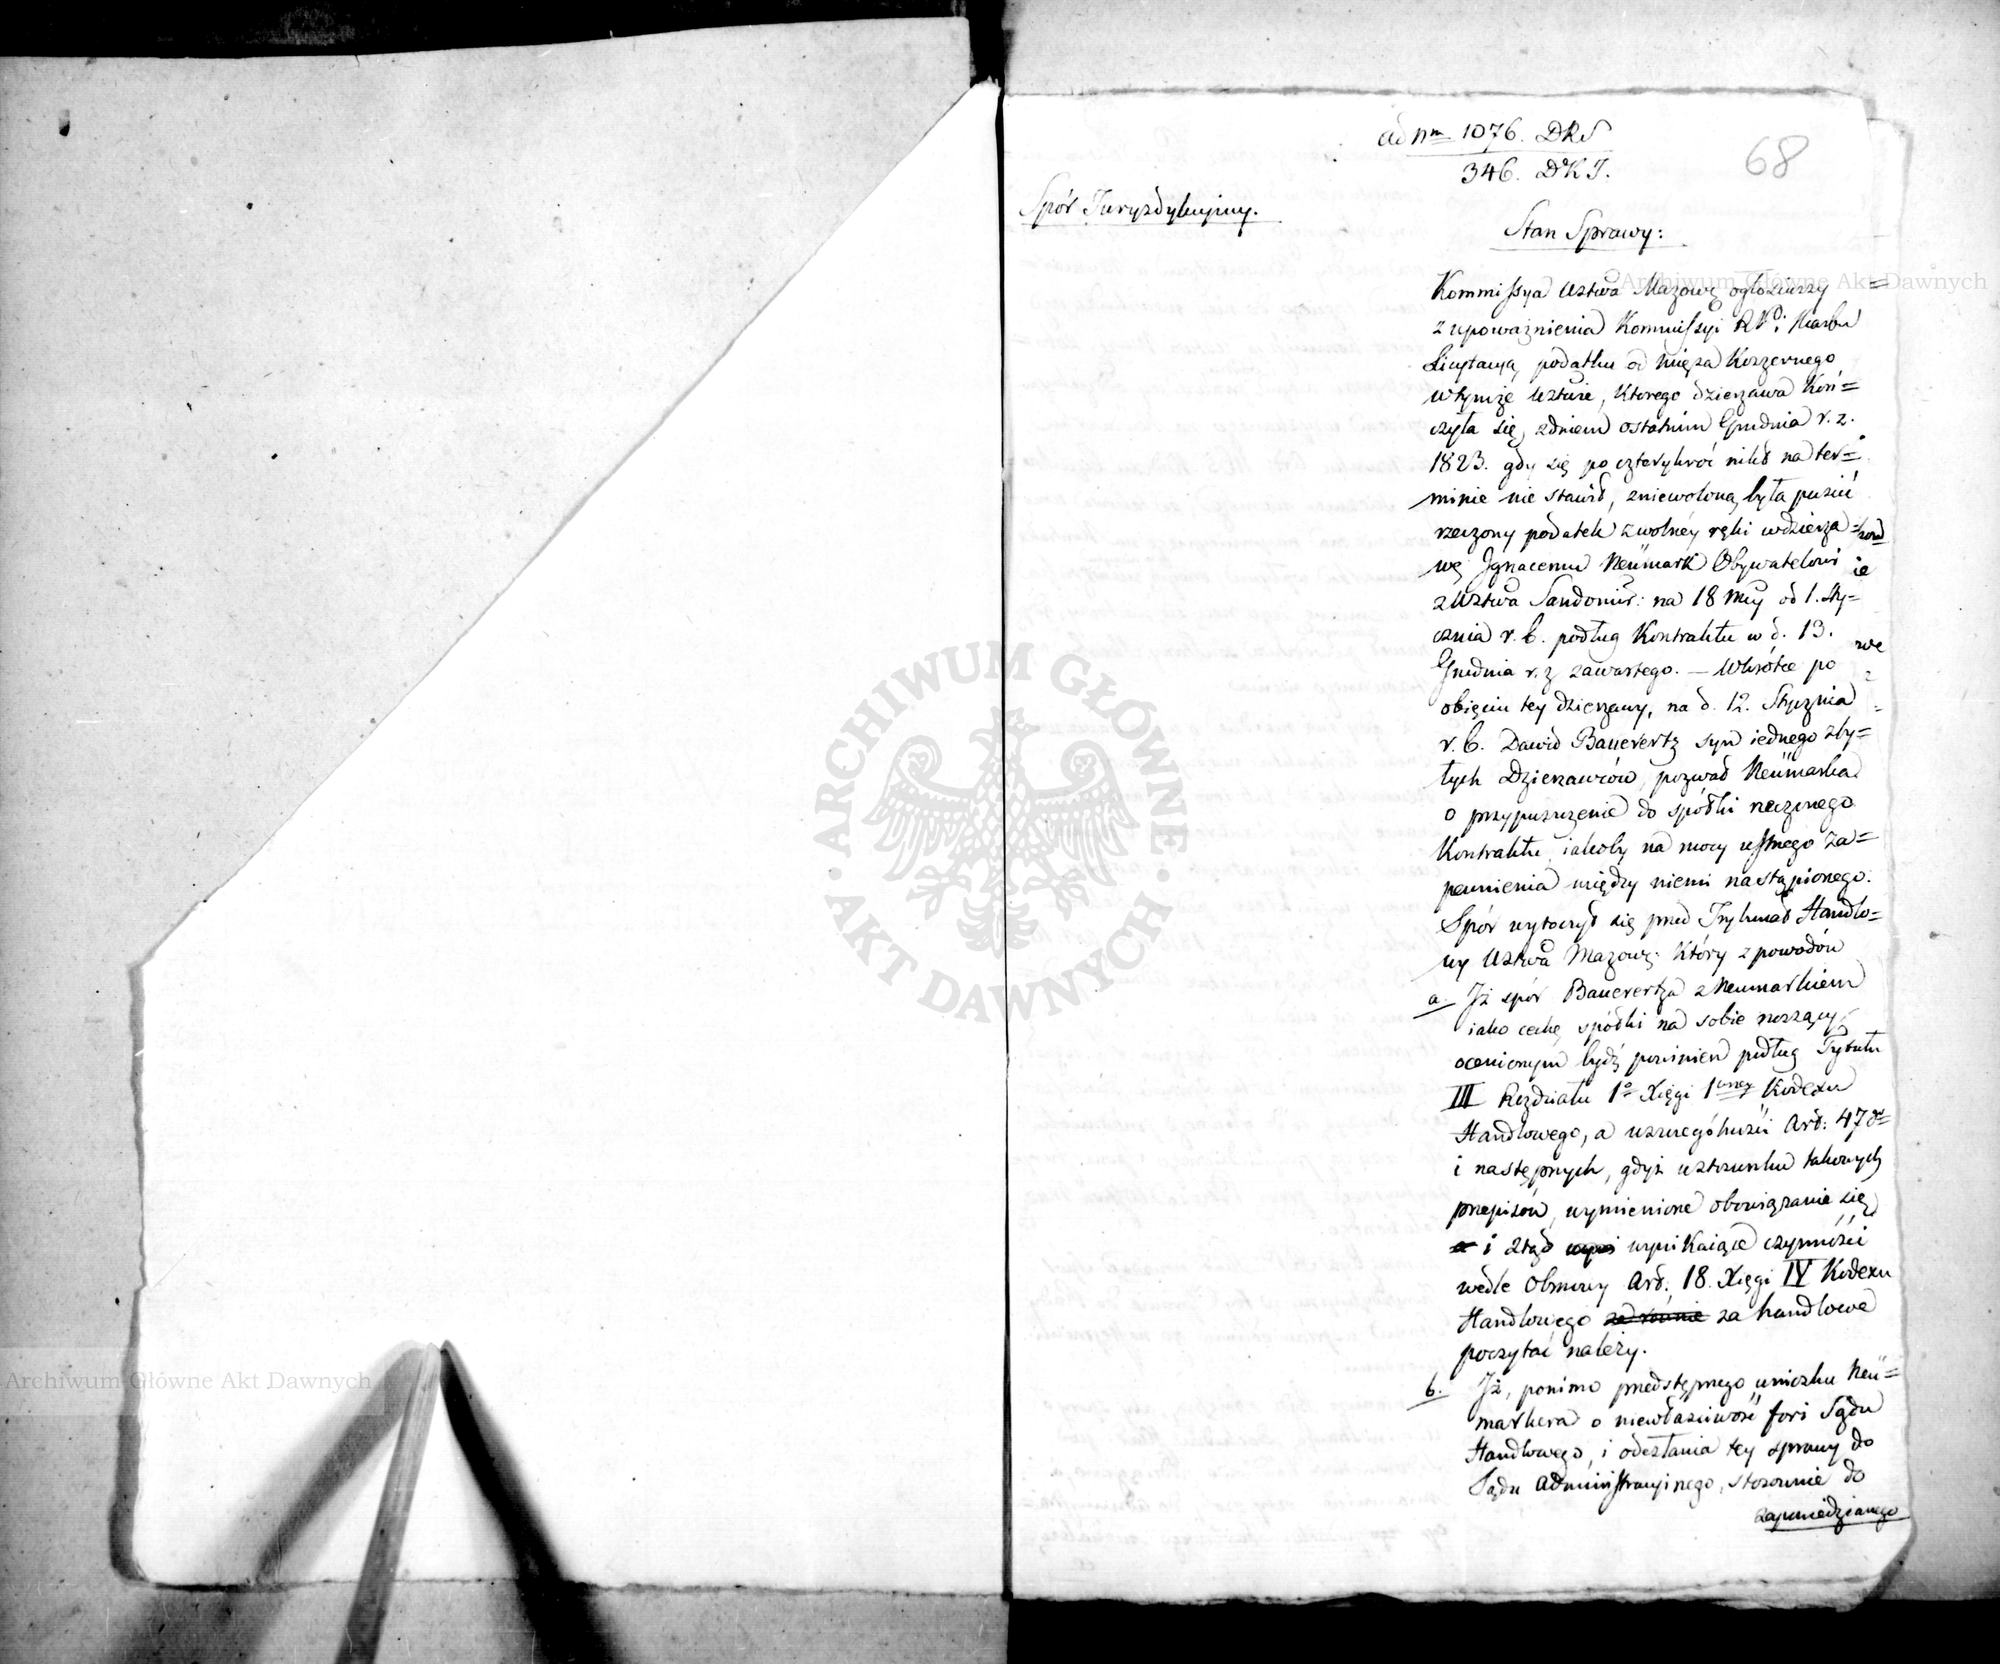 ad nm 1076. DRS
346. DKJ.
68
Spór Juryzdykcyiny.
Stan Sprawy:
Kommissya Wztwa Mazow: ogłosiwszy
z upoważnienia Kommissyi R Skarbu
Licytacyą podatku od mięsa Koszernego
w tymże Wztwie, Którego dzierzawa Koń=
czyła się z dniem ostatnim Grudnia r. z.
1823. gdy się po czterykroć nikt na ter=
minie nie stawił, zniewoloną była puścić
rzeczony podatek z wolney ręki w dzierza=
wę Ignacemu Neümark Obywatelowi
z Wztwa Sandomir: na 18 mcy od 1. Sty=
cznia r. b. podług Kontraktu w d. 13.
Grudnia r. z zawartego. — Wkrótce po
obięciu tey dzierzawy, na d. 12. Stycznia
r. b. Dawid Bauerertz syn iednego z by=
łych Dzierzawców, pozwał Neümarka
o przypuszczenie do spółki rzeczonego
Kontraktu iakoby na mocy ustnego za=
pewnienia między niemi nastąpionego.
Spór wytoczył się przed Trybunał Handlo=
wy Wztwa Mazow: Który z powodów
a. Iż spór Bauerertza z Neumarkiem
iako cechę spółki na sobie noszący,
ocenionym bydź powinien podług Tytułu
III Rozdziału 1o Xięgi 1wszey Kodexu
Handlowego, a w szczególności Art: 47go
i następnych, gdyż w stosunku takowych
przepisów, wymienione obowiązanie się
i ztąd wynikaiące czynności
wedle Osnowy Art: 18. Xięgi IV Kodexu
Handlowego za handlowe
poczytać należy.
b. Iż, pomimo przedstępnego wniosku Neü=
markera o niewłaściwość fori Sądu
Handlowego, i odesłania tey sprawy do
Sądu Administracyinego, stosownie do
zapowiedzianego
ARCHIWUM GŁÓWNE
AKT DAWNYCH
Archiwum Główne Akt Dawnych
Archiwum Główne Akt Dawnych